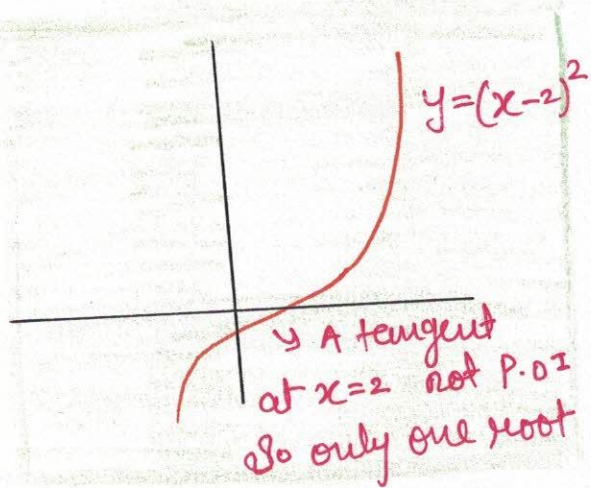 y=(x-2)²
↘ A tangent
at x=2 not P.OI
So only one root